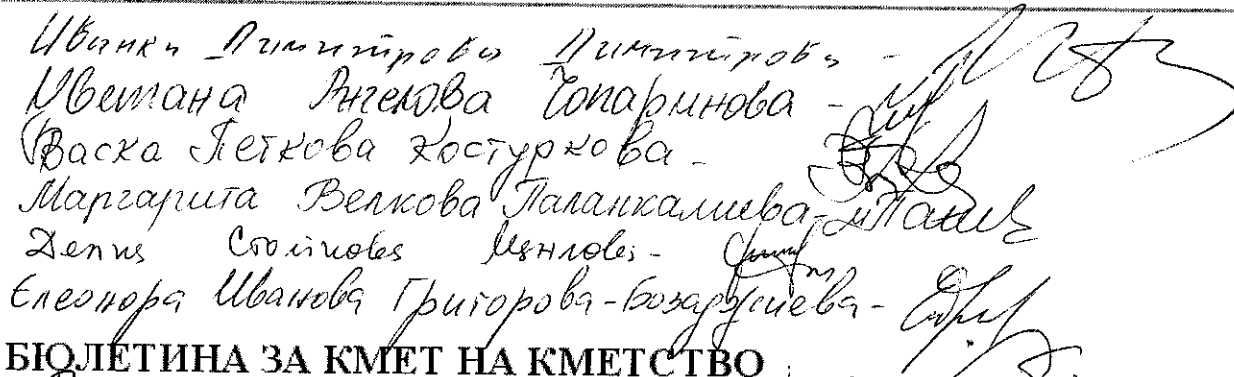 Иванка Димитрова Димитрова -
Цветана Ангелова Топаринова -
Васка Петкова Костуркова -
Маргарита Велкова Паланкалиева -
Стоилова
Елеонора Иванова Григорова-Бозаджиева -
БЮЛЕТИНА ЗА КМЕТ НА КМЕТСТВО